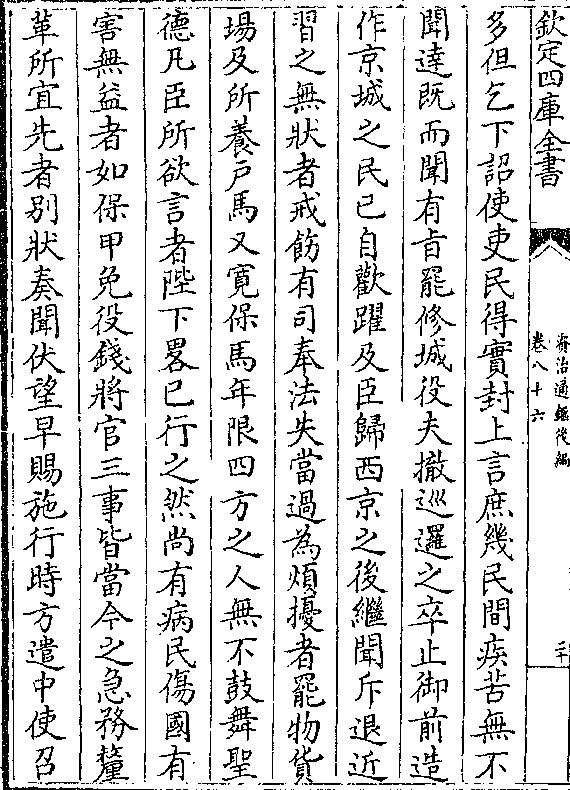 欽定四庫全書
資治通鑑後編
卷八十六
二十
多但乞下詔使吏民得實封上言庶幾民間疾苦無不
聞達既而聞有旨罷修城役夫撤巡邏之卒止御前造
作京城之民已自歡躍及臣歸西京之後繼聞斥退近
習之無狀者戒飭有司奉法失當過為煩擾者罷物貨
場及所養戶馬又寬保馬年限四方之人無不鼓舞聖
德凡臣所欲言者陛下畧已行之然尚有病民傷國有
害無益者如保甲免役錢將官三事皆當今之急務釐
革所宜先者別狀奏聞伏望早賜施行時方遣中使召